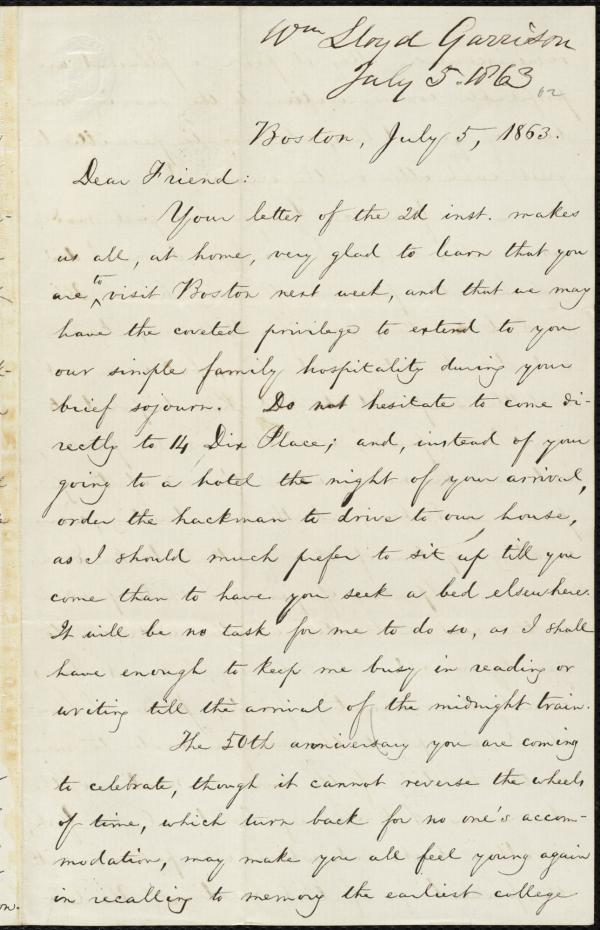 Wm Lloyd Garrison
July 5. 1863
Boston, July 5, 1863.
Dear Friend:
Your letter of the 2d inst. makes
us all, at home, very glad to learn that you
are to visit Boston next week, and that we may
have the coveted privilege to extend to you
our simple family hospitality during your
brief sojourn. Do not hesitate to come di-
rectly to 14 Dix Place; and, instead of your
going to a hotel the night of your arrival,
order the hackman to drive to our house,
as I should much prefer to sit up till you
come than to have you seek a bed elsewhere.
It will be no task for me to do so, as I shall
have enough to keep me busy in reading or
writing till the arrival of the midnight train.
The 50th anniversary you are coming
to celebrate, though it cannot reverse the wheels
of time, which turn back for no one's accom-
modation, may make you all feel young again
in recalling to memory the earliest college
on.